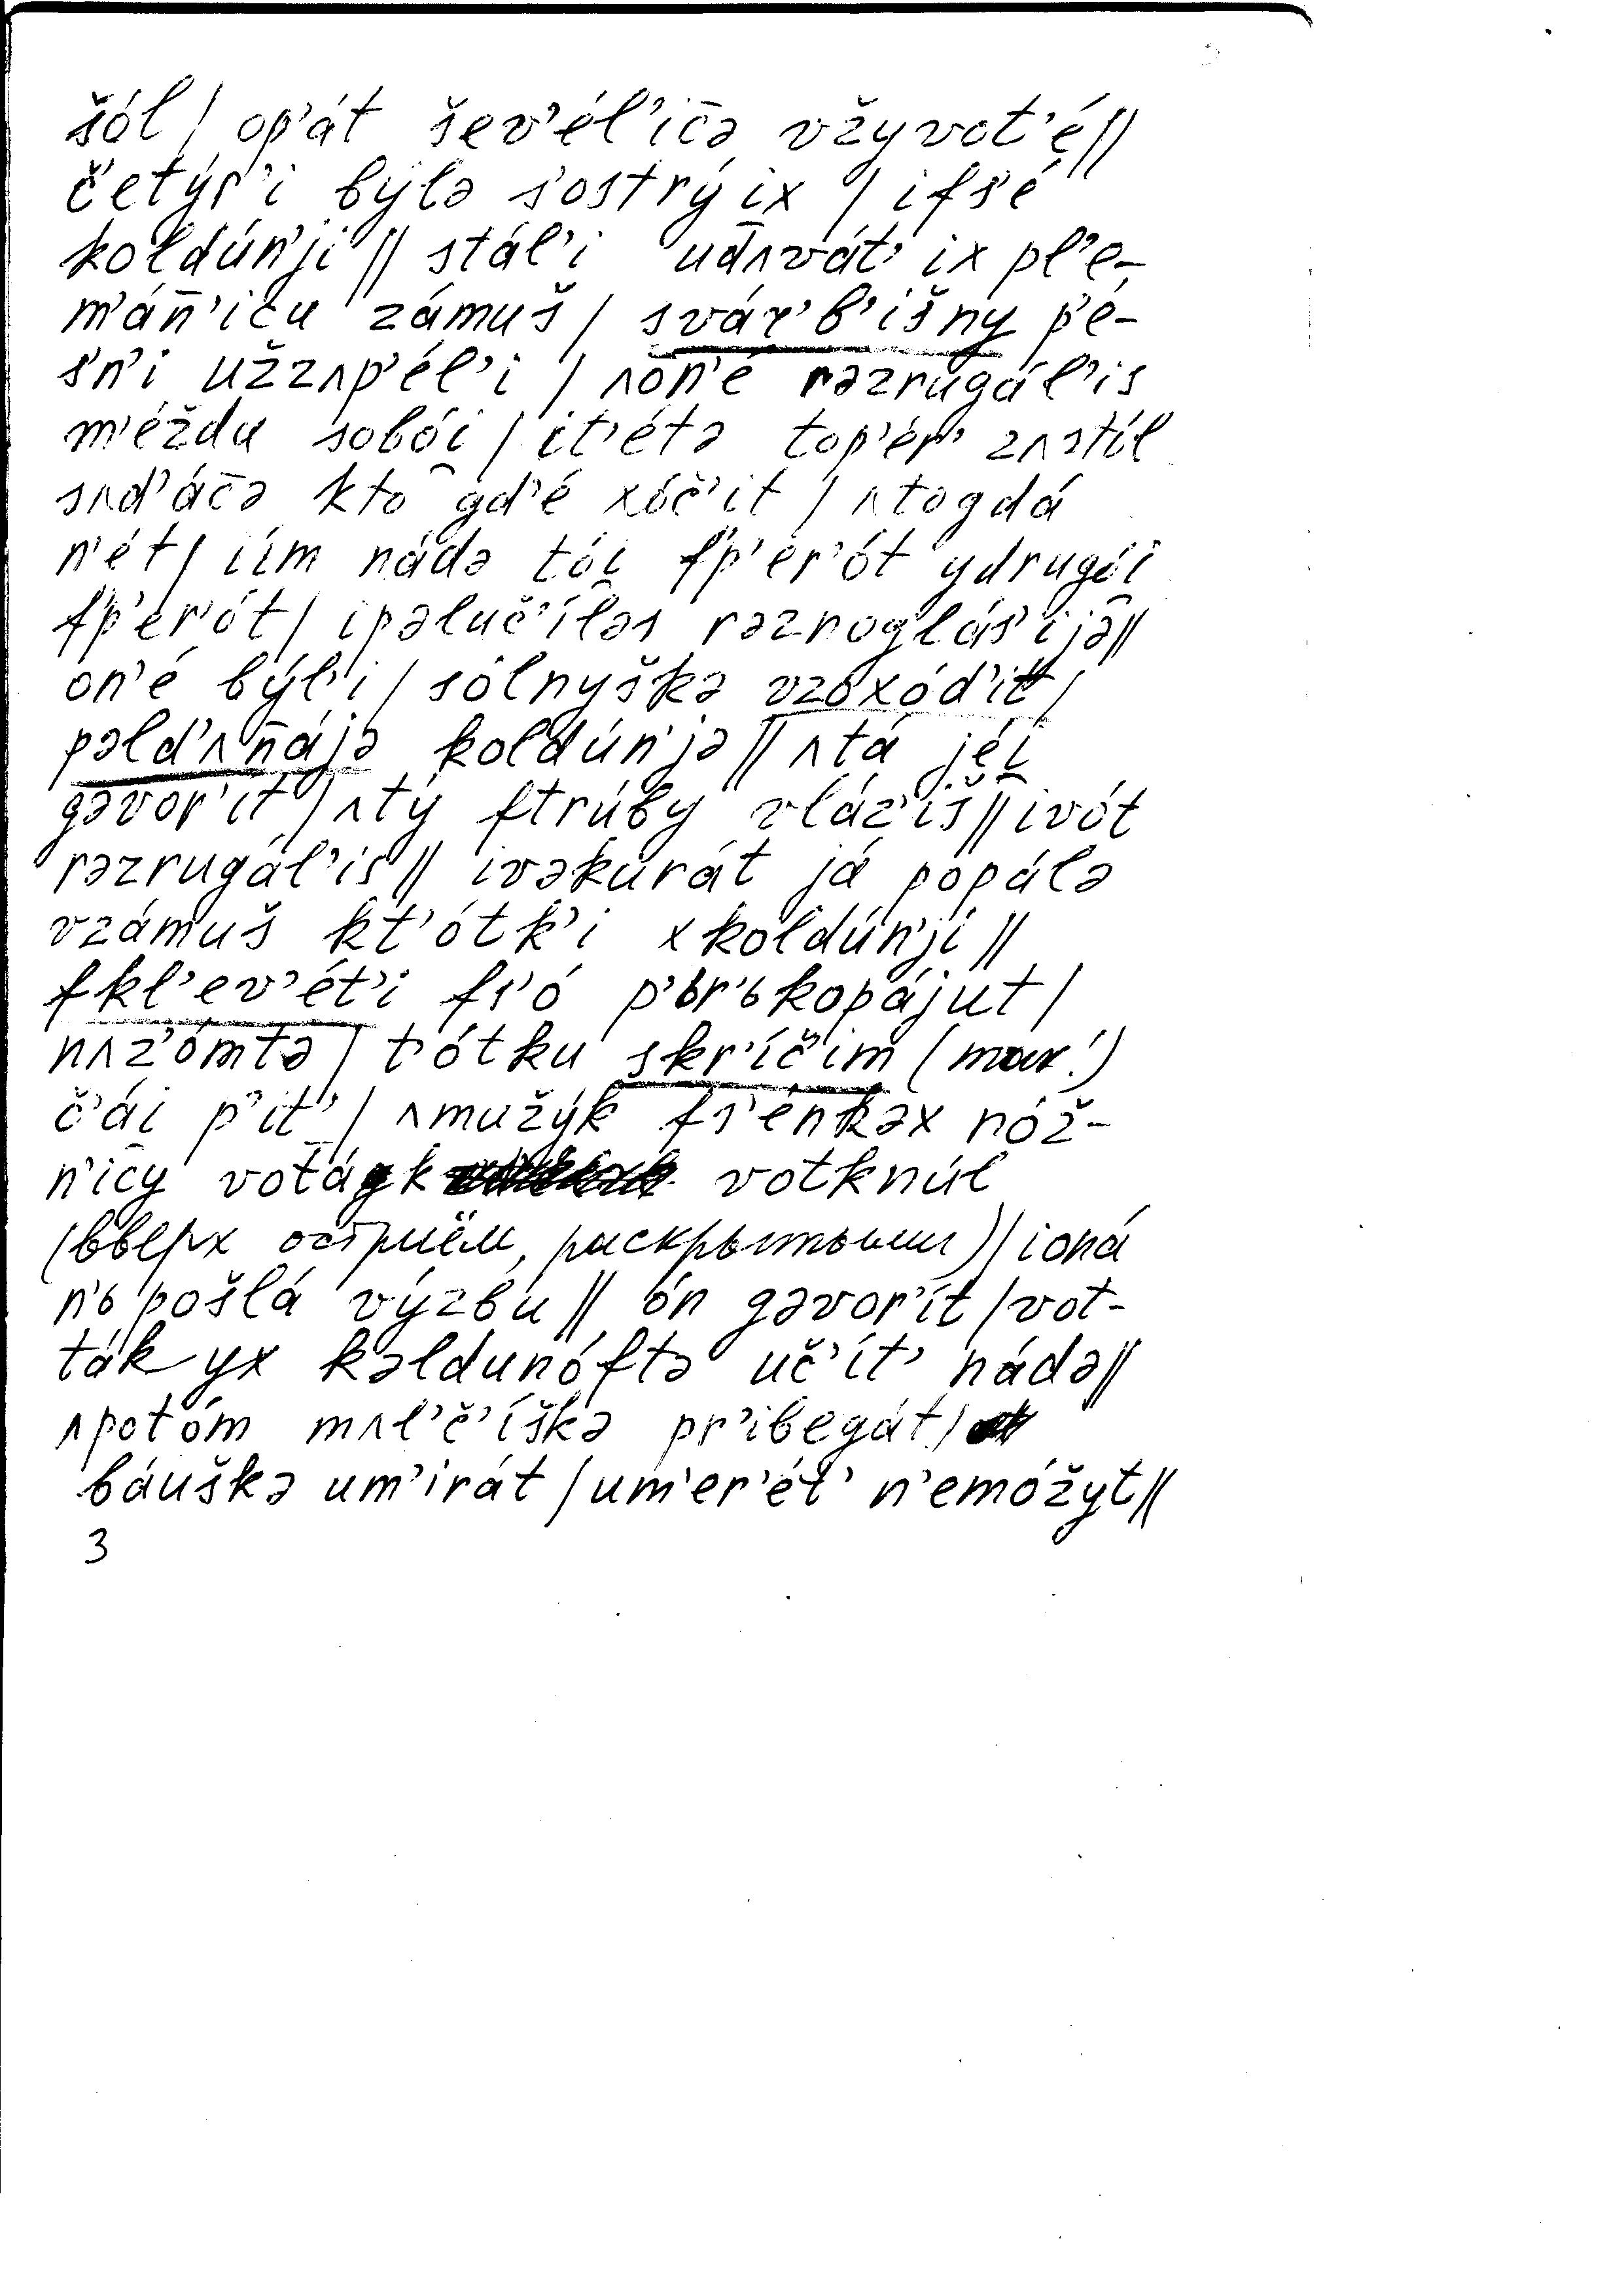 šól / op'át šev'él'ic̄ə vžyvot'é //
četýr'i býlə s'ostrý ix / ifs'é
koldún'ji // stál'i ud̄ʌvát' ix pl'e-
m'án̄'icu zámuš / svár'b'išny p'é-
s'n'i užzʌp'él'i / ʌon'é rəzrugál'is
m'éždu sobói̯ / it'étə top'ér' zʌstól
sʌd'ác̄ə kto gd'é xóč'it / ʌtogdá
n'ét / iím nádə tói̯ fp'er'ót ydrugói̯
fp'er'ót / ipəluč'íləs rəznoglás'ijə //
on'é býl'i / sólnyškə vzoxód'it /
pəld'ʌn̄ájə koldún'jə // ʌtá jéi̯
gəvor'ít / ʌtý ftrúby vláz'iš // ivót
rəzrugál'is // ivəkurát já popálə
vzámuš kt'ótk'i xkoldún'ji //
fkl'ev'ét'i fs'ó p'ьr'ьkopájut /
nʌz'ómtə / t'ótku skr'íč'im (мах!)
č'ái̯ p'it' / ʌmužýk fs'énkəx nóž-
n'icy votágk votknúl
(вверх остриём, раскрытыми) / ioná
n'ь pošlá výzbu // ón gəvor'ít / vot-
ták yx kəldunóftə uč'ít' nádə //
ʌpotóm mʌl'č'íškə pr'ibegát /
báuškə um'irát / um'er'ét' n'emóžyt //
3